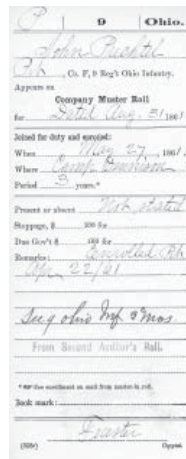 P | 9 | Ohio.
John
Pvt, Co. F, 9 Reg't Ohio Infantry.
Appears on
Company Muster Roll
for Dated Aug. 31 1861
Joined for duty and enrolled:
When May 27, 1861.
Where Camp Dennison
Period 3 years.*
Present or absent Not stated
Stoppage, $ 100 for
Due Gov't $ 100 for
Remarks: Enrolled
Apr 22/61
See 9 Ohio Inf 3 Mos
From Second Auditor's Roll.
Book mark:
(358c) Copyist.